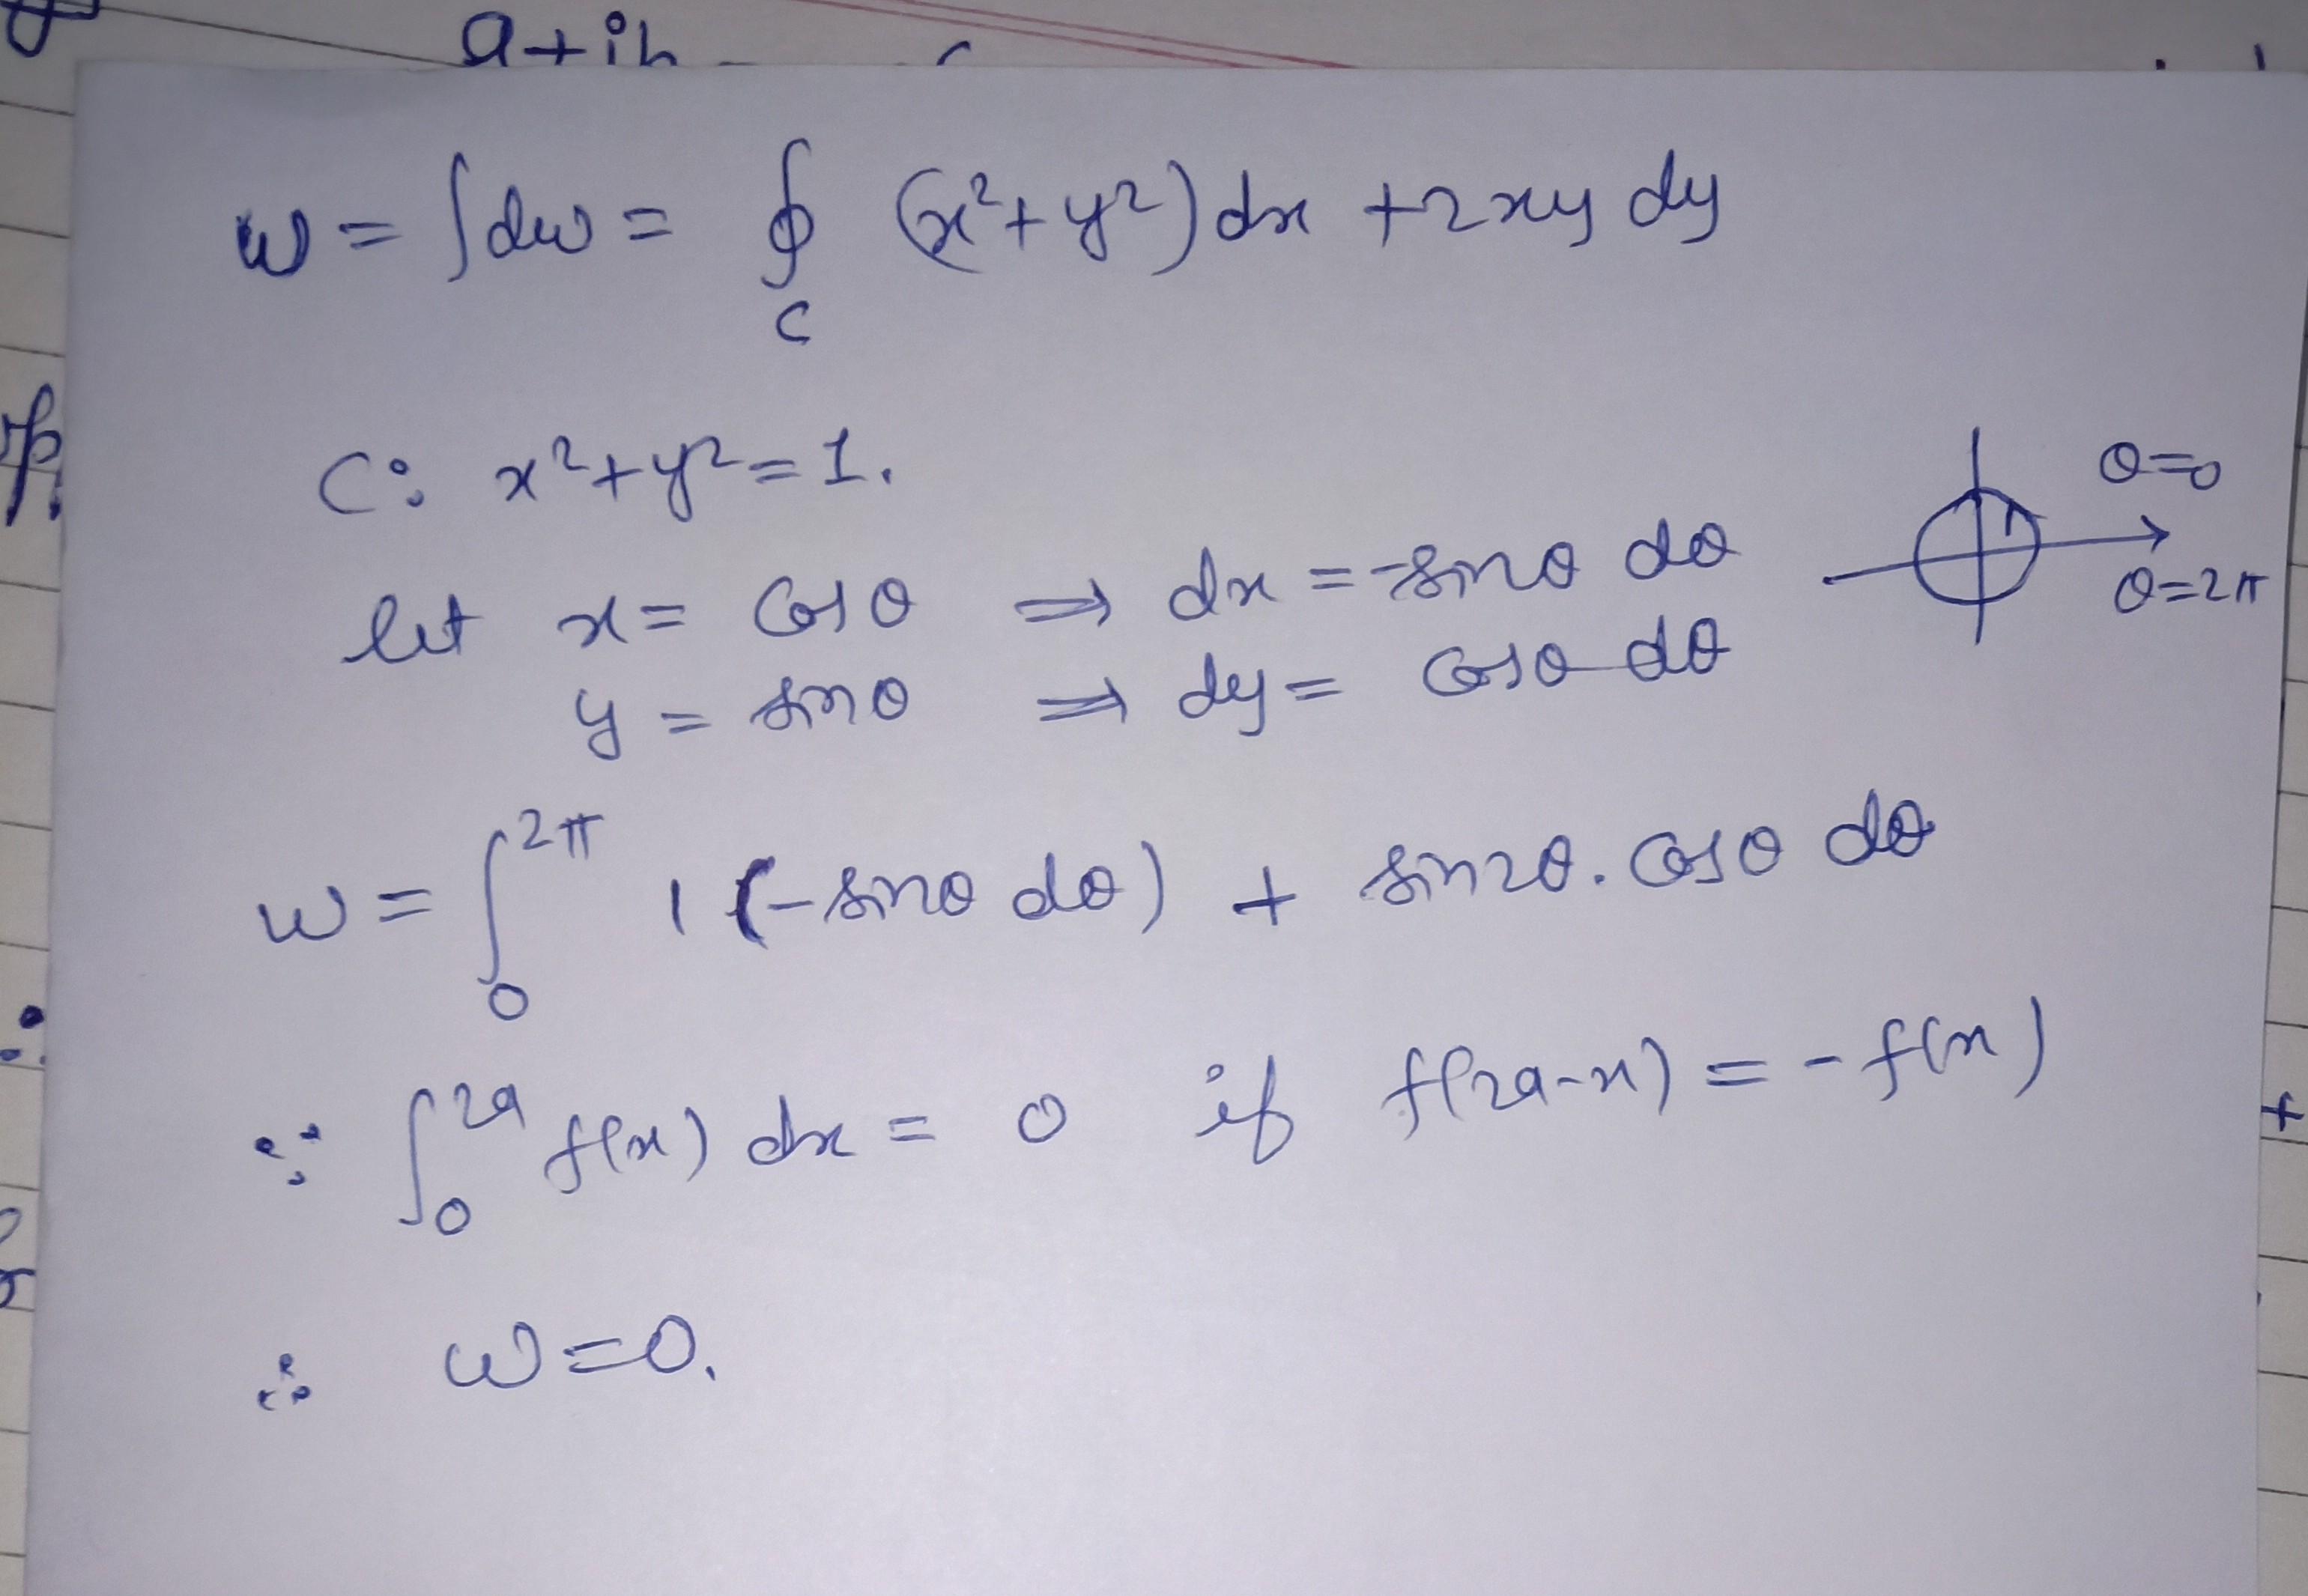 a+ib
w = ∫dw = ∮_C (x²+y²)dx + 2xy dy
C: x²+y²=1.
θ=0
let x = cosθ ⇒ dx = -sinθ dθ
θ=2π
y = sinθ ⇒ dy = cosθ dθ
w = ∫₀^2π 1(-sinθ dθ) + sin2θ.cosθ dθ
∵ ∫₀^2a f(x) dx = 0 if f(2a-x) = -f(x)
∴ w=0.